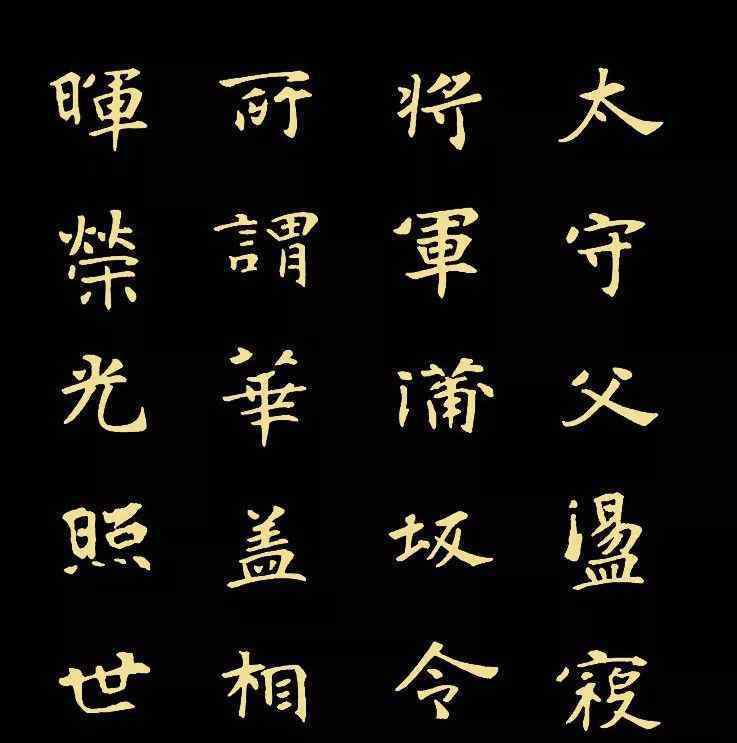 太守父盪寇
將軍蒲坂令
所謂華盖相
暉榮光照世